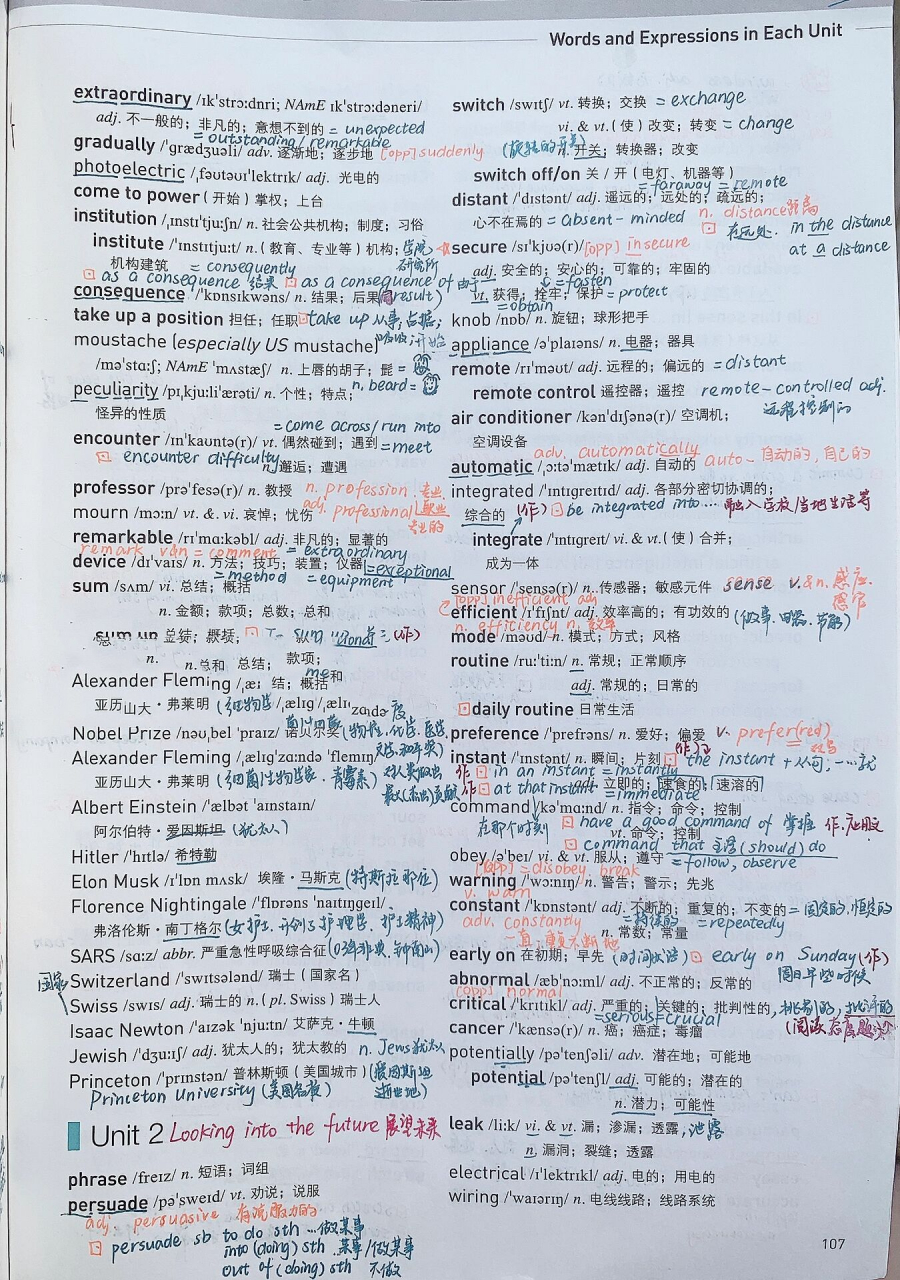 Words and Expressions in Each Unit
extraordinary /ɪk'strɔ:dnri; NAmE ɪk'strɔ:dəneri/
adj. 不一般的；非凡的；意想不到的 = unexpected
= outstanding / remarkable
gradually /'ɡrædʒuəli/ adv. 逐渐地；逐步地 [opp] suddenly
photoelectric /ˌfəʊtəʊɪ'lektrɪk/ adj. 光电的
come to power (开始) 掌权；上台
institution /ˌɪnstɪ'tju:ʃn/ n. 社会公共机构；制度；习俗
institute /'ɪnstɪtju:t/ n. (教育、专业等) 机构；学院
机构建筑 = consequently 研究所
as a consequence 结果 as a consequence of 由于
consequence /'kɒnsɪkwəns/ n. 结果；后果 (result)
take up a position 担任；任职 take up 从事；占据；
moustache (especially US mustache) 吸收；开始
/mə'stɑ:ʃ; NAmE 'mʌstæʃ/ n. 上唇的胡子；髭 =
peculiarity /pɪˌkju:li'ærəti/ n. 个性；特点； n. beard =
怪异的性质
= come across / run into
encounter /ɪn'kaʊntə(r)/ vt. 偶然碰到；遇到 = meet
encounter difficulty n. 邂逅；遭遇
professor /prə'fesə(r)/ n. 教授 n. profession 专业, 职业
mourn /mɔ:n/ vt. & vi. 哀悼；忧伤 adj. professional 专业的
remarkable /rɪ'mɑ:kəbl/ adj. 非凡的；显著的
remark v&n = comment = extraordinary
device /dɪ'vaɪs/ n. 方法；技巧；装置；仪器 = exceptional
= method = equipment
sum /sʌm/ vi. 总结；概括
n. 金额；款项；总数；总和
sum up
n. 总和 总结； 款项；
Alexander Fleming
亚历山大・弗莱明
Nobel Prize /nəʊˌbel 'praɪz/ 诺贝尔奖 (物理, 化学, 医学,
Alexander Fleming /ˌælɪɡ'zɑ:ndə 'flemɪŋ/
亚历山大・弗莱明 (细菌生物学家, 青霉素)
Albert Einstein /'ælbət 'aɪnstaɪn/
阿尔伯特・爱因斯坦 (犹太人)
Hitler /'hɪtlə/ 希特勒
Elon Musk /ɪ'lɒn mʌsk/ 埃隆・马斯克 (特斯拉那位)
Florence Nightingale /'flɒrəns 'naɪtɪŋɡeɪl/
弗洛伦斯・南丁格尔 (女护士, 开创了护理学, 护士精神)
SARS /sɑ:z/ abbr. 严重急性呼吸综合征 (03年非典, 钟南山)
Switzerland /'swɪtsələnd/ 瑞士 (国家名)
国家
Swiss /swɪs/ adj. 瑞士的 n. (pl. Swiss) 瑞士人
Isaac Newton /'aɪzək 'nju:tn/ 艾萨克・牛顿
Jewish /'dʒu:ɪʃ/ adj. 犹太人的；犹太教的 n. Jews 犹太人
Princeton /'prɪnstən/ 普林斯顿 (美国城市) (爱因斯坦
Princeton University (美国名校) 逝世地)
Unit 2 Looking into the future 展望未来
phrase /freɪz/ n. 短语；词组
persuade /pə'sweɪd/ vt. 劝说；说服
adj. persuasive 有说服力的
persuade sb to do sth ...做某事
into (doing) sth 某事/做某事
out of (doing) sth 不做
switch /swɪtʃ/ vt. 转换；交换 = exchange
vi. & vt. (使) 改变；转变 = change
(旋转的开关) n. 开关；转换器；改变
switch off/on 关 / 开 (电灯、机器等)
= faraway = remote
distant /'dɪstənt/ adj. 遥远的；远处的；疏远的；
心不在焉的 = absent-minded n. distance 距离
在远处. in the distance
secure /sɪ'kjʊə(r)/ [opp] insecure at a distance
adj. 安全的；安心的；可靠的；牢固的
= fasten
vt. 获得；拴牢；保护 = protect
= obtain
knob /nɒb/ n. 旋钮；球形把手
appliance /ə'plaɪəns/ n. 电器；器具
remote /rɪ'məʊt/ adj. 远程的；偏远的 = distant
remote control 遥控器；遥控 remote-controlled adj.
远程控制的
air conditioner /kən'dɪʃənə(r)/ 空调机；
空调设备
adv. automatically
automatic /ˌɔ:tə'mætɪk/ adj. 自动的 auto- 自动的, 自己的
integrated /'ɪntɪɡreɪtɪd/ adj. 各部分密切协调的；
综合的 (作) be integrated into... 融入学校/当地生活等
integrate /'ɪntɪɡreɪt/ vi. & vt. (使) 合并；
成为一体
sensor /'sensə(r)/ n. 传感器；敏感元件 sense v. & n. 感应, 感官
[opp] inefficient adj
efficient /ɪ'fɪʃnt/ adj. 效率高的；有功效的 (做事, 电器, 节能)
n. efficiency n. 效率
mode /məʊd/ n. 模式；方式；风格
routine /ru:'ti:n/ n. 常规；正常顺序
adj. 常规的；日常的
daily routine 日常生活
preference /'prefrəns/ n. 爱好；偏爱 v. prefer(red)
instant /'ɪnstənt/ n. 瞬间；片刻 the instant + 从句, 一...就
作 in an instant = instantly
adj. 立即的；速食的；速溶的
作 at that instant = immediate
command /kə'mɑ:nd/ n. 指令；命令；控制
在那个时刻 have a good command of 掌握 作.应用文
vt. 命令；控制
command that 主语 (should) do
obey /ə'beɪ/ vi. & vt. 服从；遵守 = follow, observe
[opp] = disobey, break
warning /'wɔ:nɪŋ/ n. 警告；警示；先兆
v. warn
constant /'kɒnstənt/ adj. 不断的；重复的；不变的 = 固定的, 恒定的
adv. constantly = 持续的 = repeatedly
一直, 重复不断地 n. 常数；常量
early on 在初期；早先 (时间状语) early on Sunday (作)
周日早些时候
abnormal /æb'nɔ:ml/ adj. 不正常的；反常的
[opp] normal
critical /'krɪtɪkl/ adj. 严重的；关键的；批判性的, 挑剔的, 批评的
= serious = crucial (阅读态度题)
cancer /'kænsə(r)/ n. 癌；癌症；毒瘤
potentially /pə'tenʃəli/ adv. 潜在地；可能地
potential /pə'tenʃl/ adj. 可能的；潜在的
n. 潜力；可能性
leak /li:k/ vi. & vt. 漏；渗漏；透露, 泄露
n. 漏洞；裂缝；透露
electrical /ɪ'lektrɪkl/ adj. 电的；用电的
wiring /'waɪərɪŋ/ n. 电线线路；线路系统
107